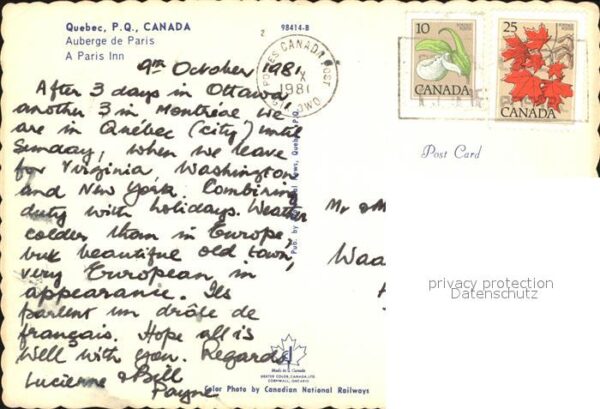 Quebec, P.Q., CANADA
Auberge de Paris
A Paris Inn
98414-B
9th October 1981.
After 3 days in Ottawa
another 3 in Montréal we
are in Québec (city) until
Sunday, when we leave
for Virginia, Washington
and New York. Combining
duty with holidays. Weather
colder than in Europe,
but beautiful old town,
very European in
appearance. Ils
parlent un drôle de
français. Hope all is
well with you. Regards
Lucienne & Bill
Payne
2
POSTES CANADA POST
X
1981
10
CANADA
25
CANADA
Post Card
Mr & M
Waa
privacy protection
Datenschutz
Made in Canada
DEXTER COLOR, CANADA, LTD.
CORNWALL, ONTARIO
Color Photo by Canadian National Railways